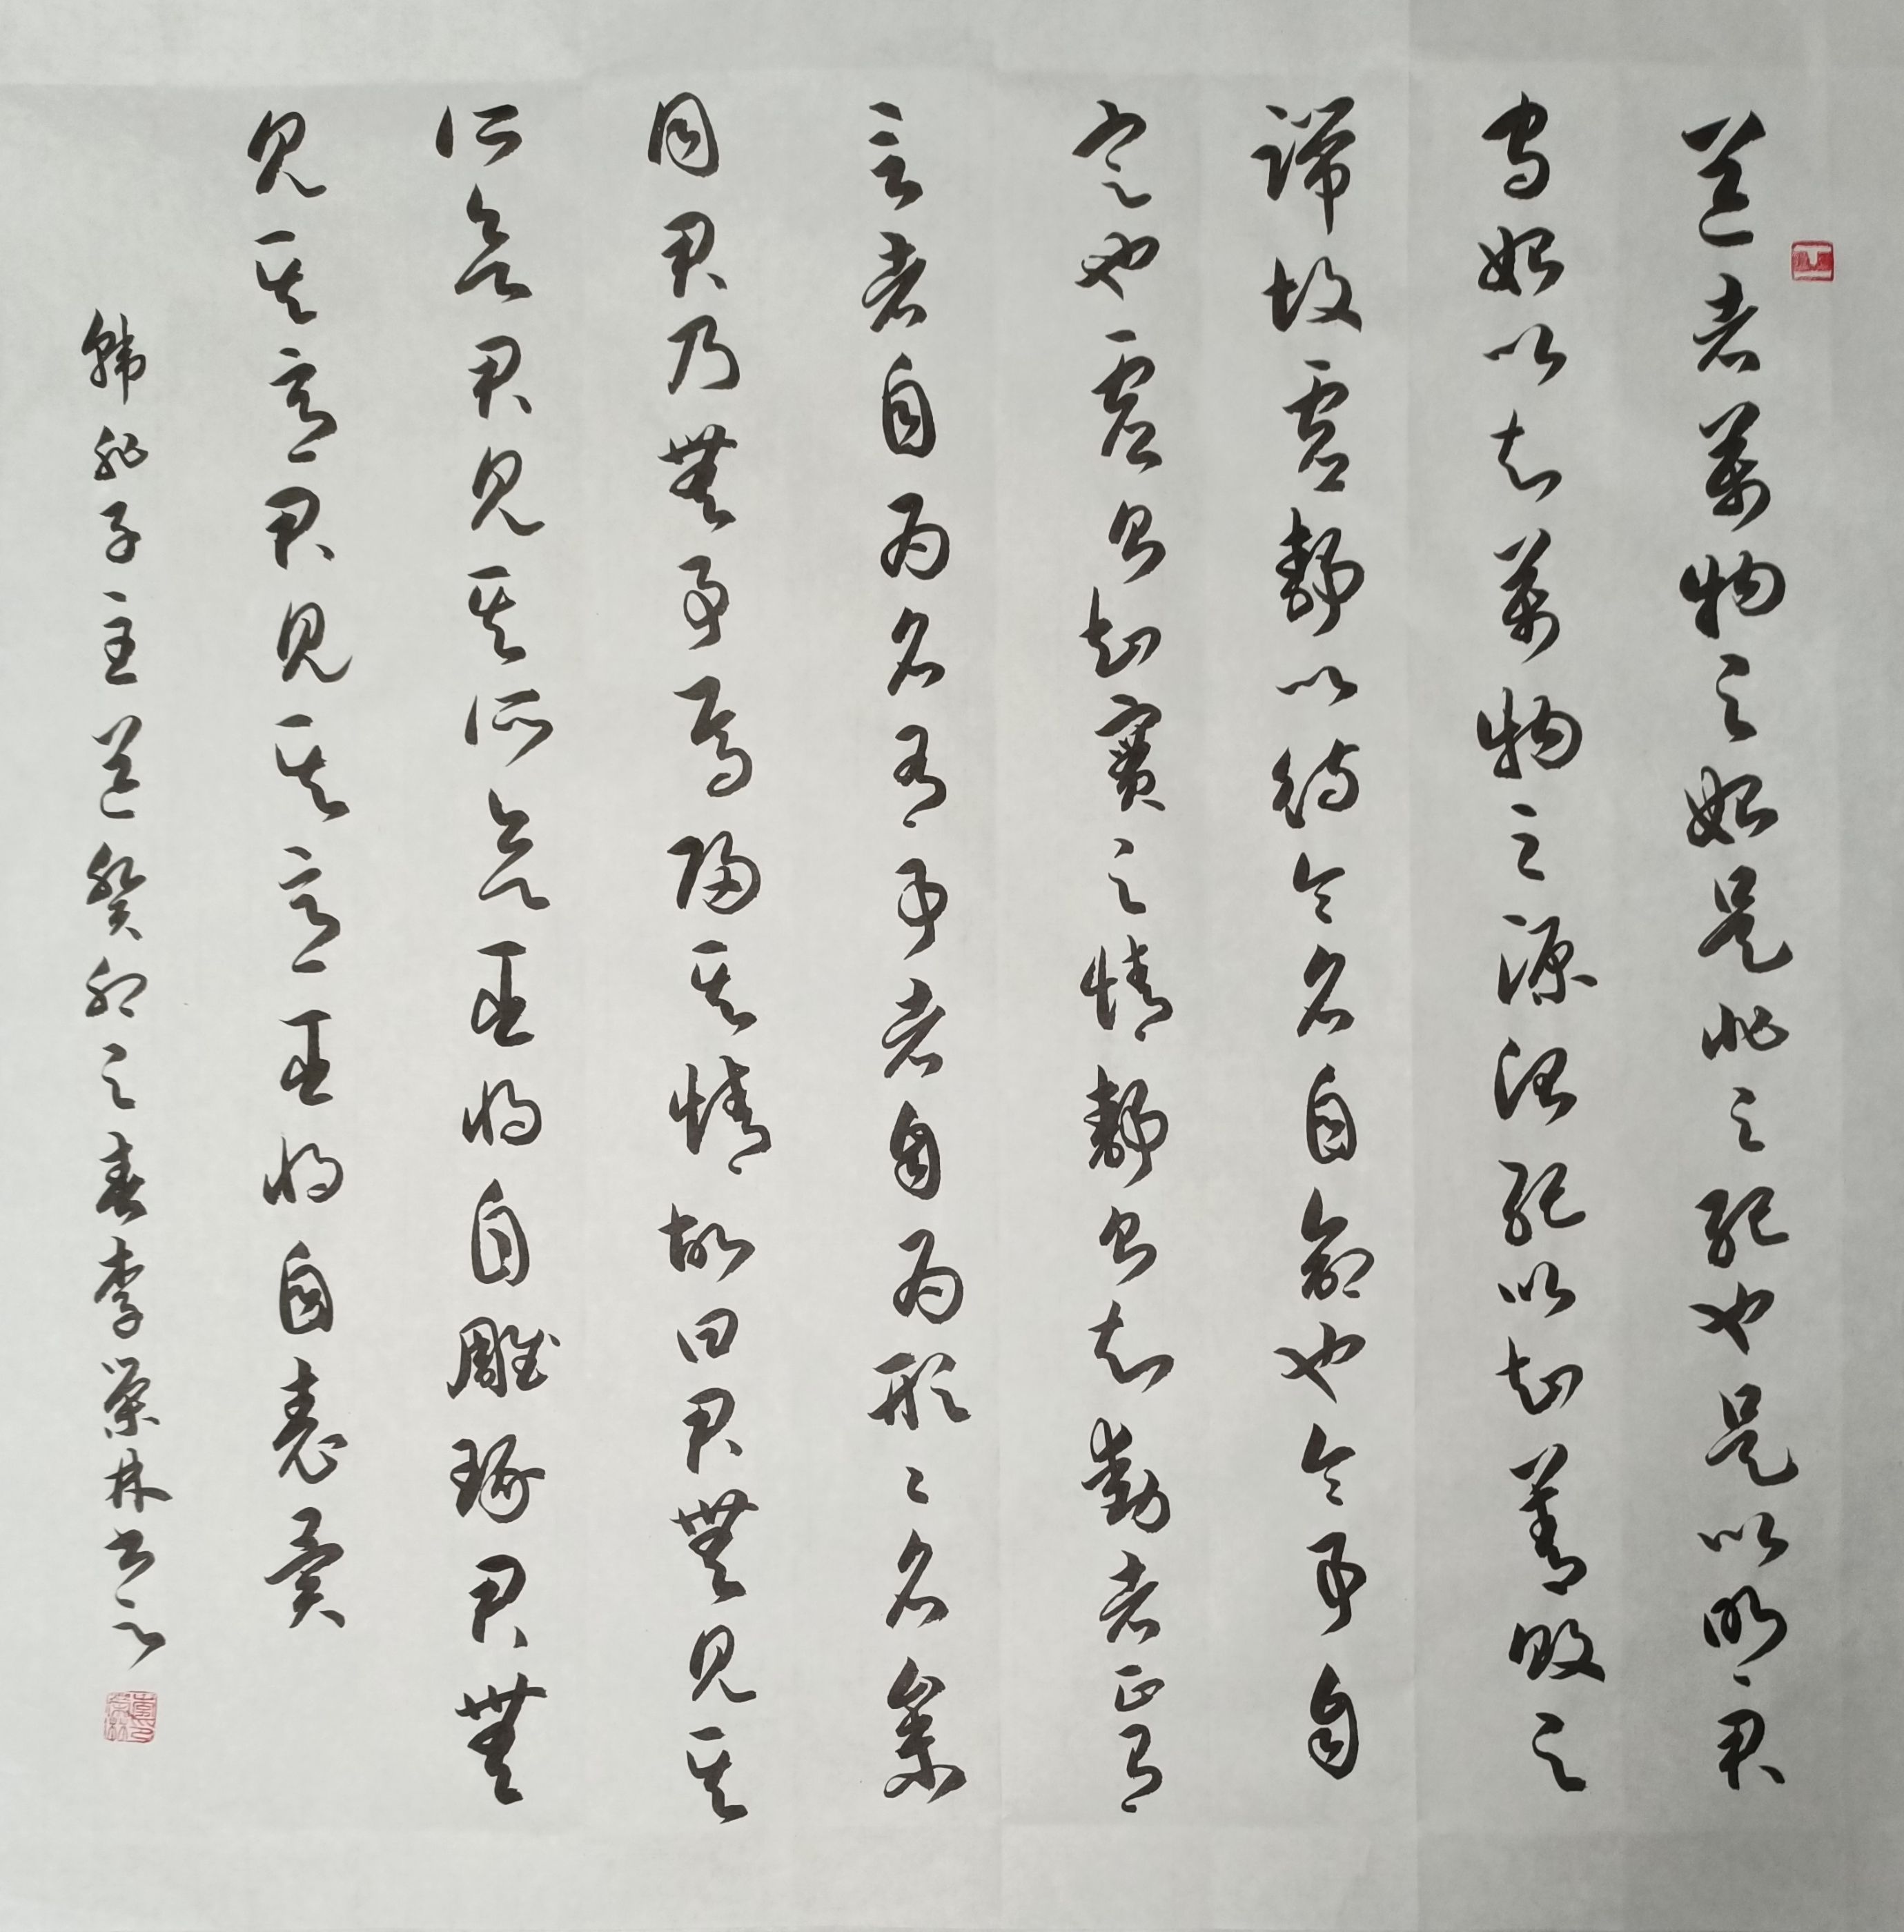 道者萬物之始是非之紀也是以明君
守始以知萬物之源治紀以知善敗之
諦故虛靜以待令名自命也令事自
定也虛則知實之情靜則知動者正有
言者自為名有事者自為形々名參
同君乃無事焉歸其情故曰君無見其
所欲君見其所欲臣將自雕琢君無
見其意君見其意臣將自表異
韓非子主道癸卯之春李榮林書之